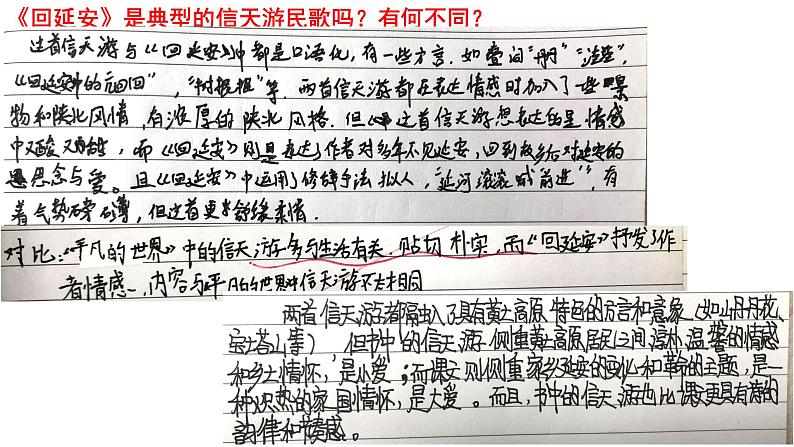 《回延安》是典型的信天游民歌吗？有何不同？
这首信天游与《回延安》中都是口语化，有一些方言，如叠词
《回延安》中的 ，"树根根"等，两首信天游都在表达情感时加入了一些景
物和陕北风情，有浓厚的陕北风格。但 这首信天游想表达的是情感
中又酸又甜，而《回延安》则是表达了作者对多年不见延安，回到故乡后对延安的
思念与爱。且《回延安》中运用了修辞手法拟人，"延河滚滚 前进"，有
着气势磅礴，但这首更 舒缓柔情.
对比：《平凡的世界》中的信天游多与生活有关，贴切 朴实，而《回延安》抒发了作
者情感，内容与平凡的世界中信天游不太相同
两首信天游都融入了具有黄土高原特色的方言和意象（如山丹丹花、
宝塔山等），但书中的信天游侧重黄土高原居民之间淳朴温馨的情感
和乡土情怀，是小爱；而课文则侧重家乡延安的变化和革命的主题，是一
种炽热的家国情怀，是大爱。而且，书中的信天游也比课文更具有 的
韵律和情感。